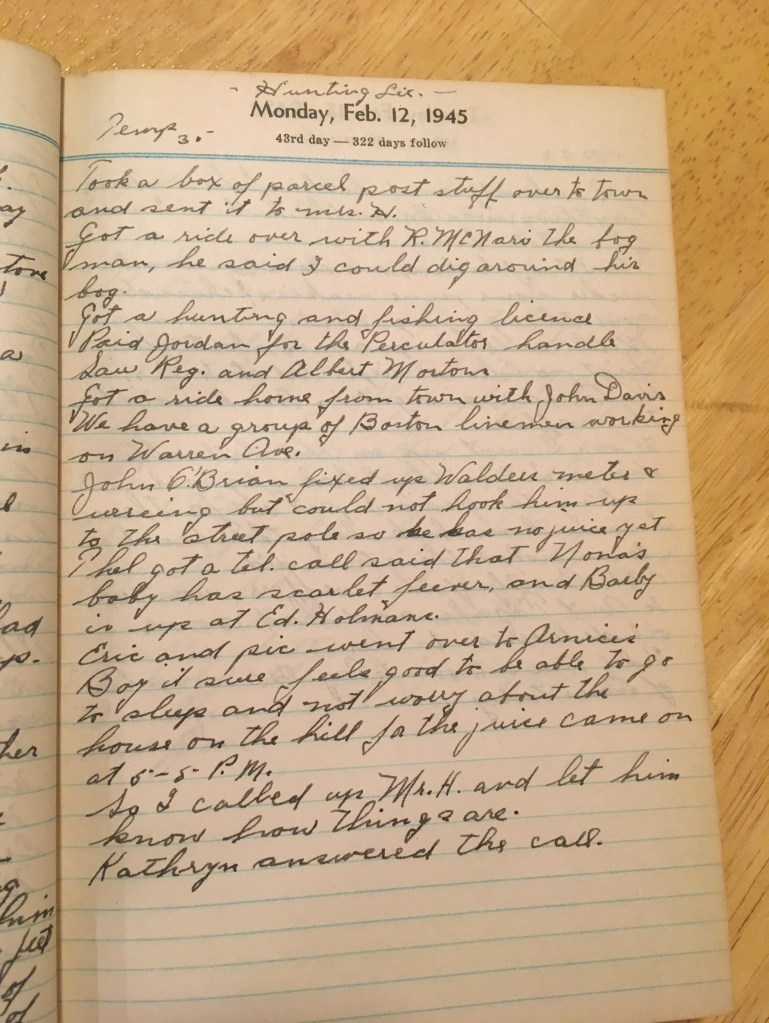 - Hunting Lic. -
Monday, Feb. 12, 1945
Temp 3.-
43rd day — 322 days follow
Took a box of parcel post stuff over to town
and sent it to mrs. H.
Got a ride over with R. McNari the fog
man, he said I could dig around his
bog.
Got a hunting and fishing licence
Paid Jordan for the Perculator handle
Saw Reg. and Albert Mortons
Got a ride home from town with John Davis
We have a group of Boston linemen working
on Warren Ave.
John O'Brian fixed up meter &
but could not hook him up
to the street pole so he has no juice yet
Phel got a tel. call said that Nona's
baby has scarlet feever, and Barby
is up at Ed. Holmans.
Eric and pic went over to
Boy it sure feels good to be able to go
to sleep and not worry about the
house on the hill for the juice came on
at 5-5- P.M.
So I called up Mr. H. and let him
know how things are.
Kathryn answered the call.
ay
a
in
had
her
him
feet
of
of